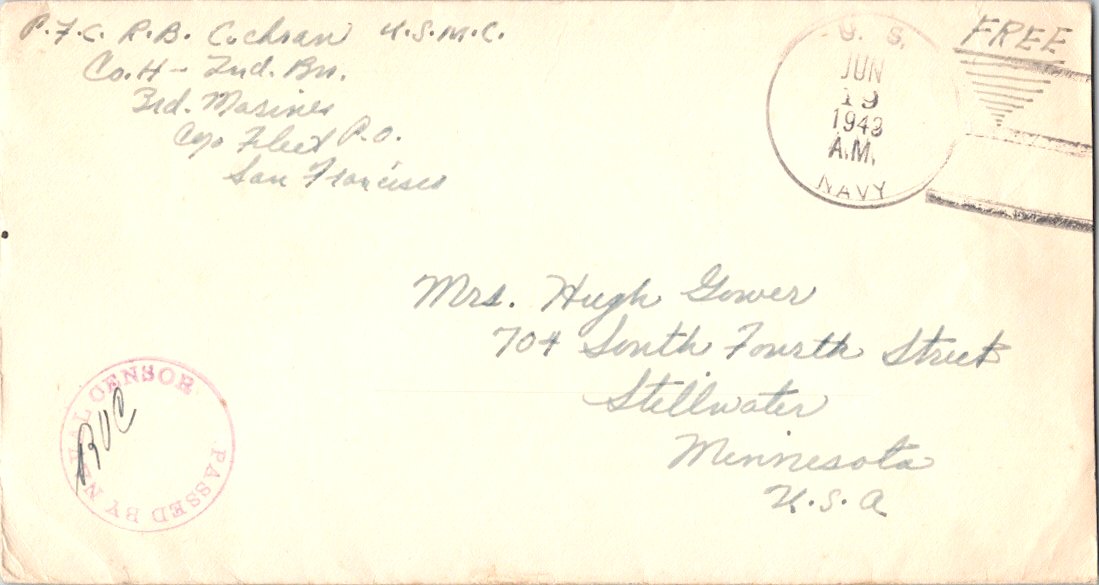 P.F.C. R.B. Cochran U.S.M.C.
Co. H - 2nd. Bn.
3rd. Marines
c/o Fleet P.O.
San Francisco
U. S.
JUN
19
1943
A.M.
NAVY
FREE
Mrs. Hugh Gower
704 South Fourth Street
Stillwater
Minnesota
U.S.A
PASSED BY NAVAL CENSOR